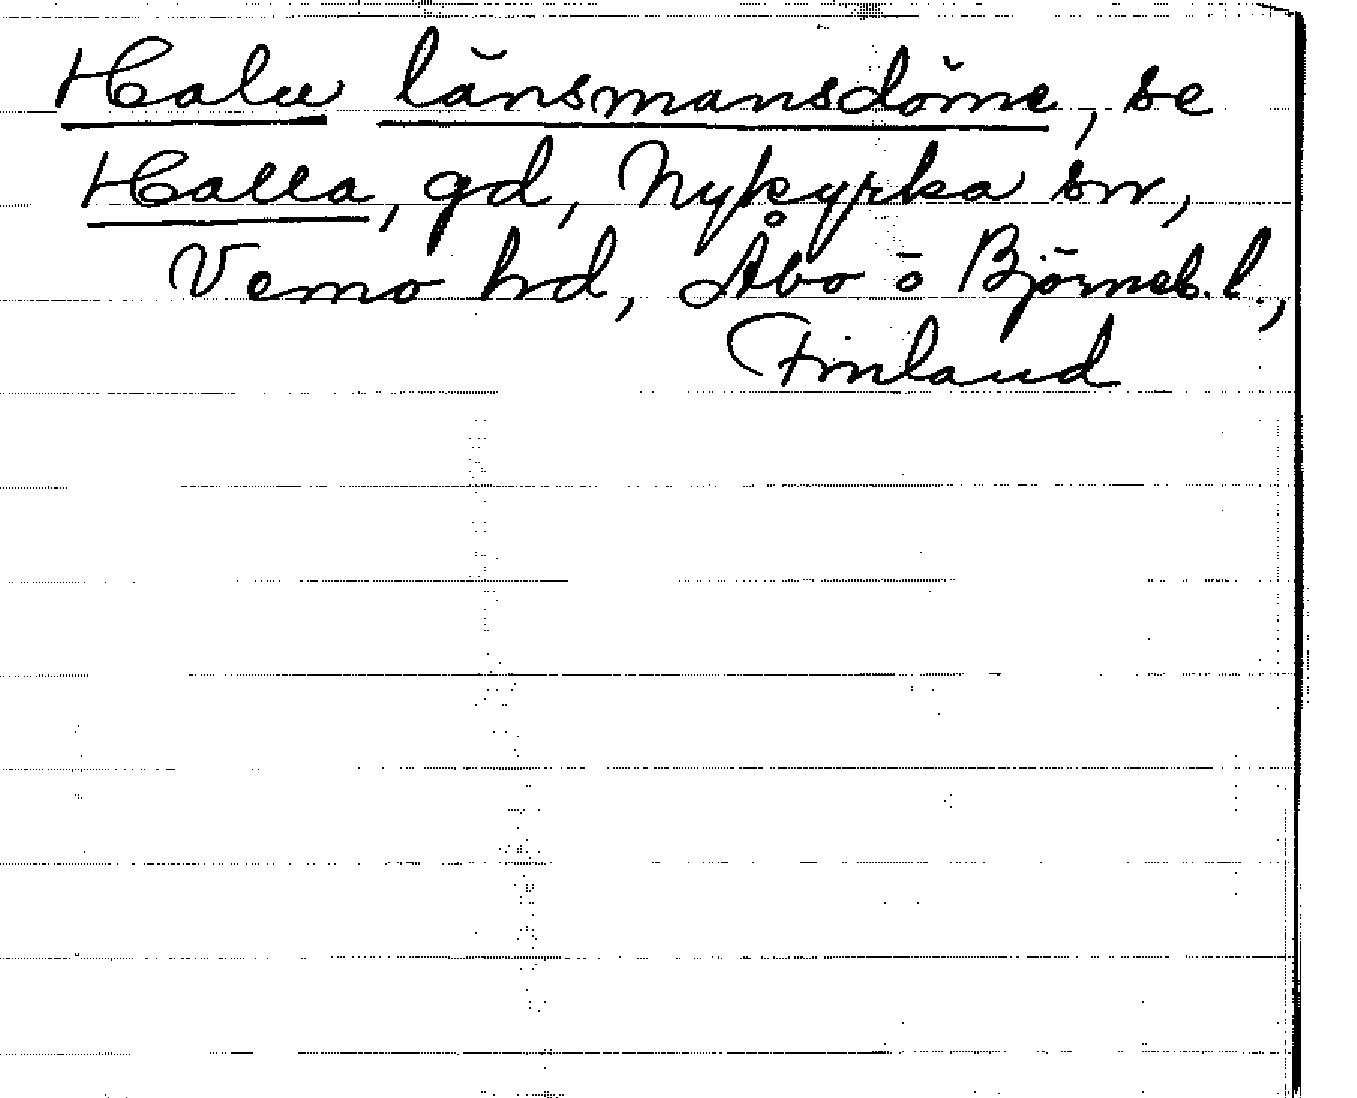 Halu länsmansdöme, se
Halla, gd, Nykyrka sn,
Vemo hd, Åbo o Björneb. l.,
Finland